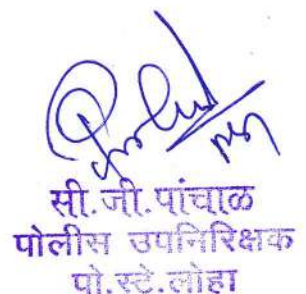 सी.जी.पांचाळ
पोलीस उपनिरिक्षक
पो.स्टे.लोहा